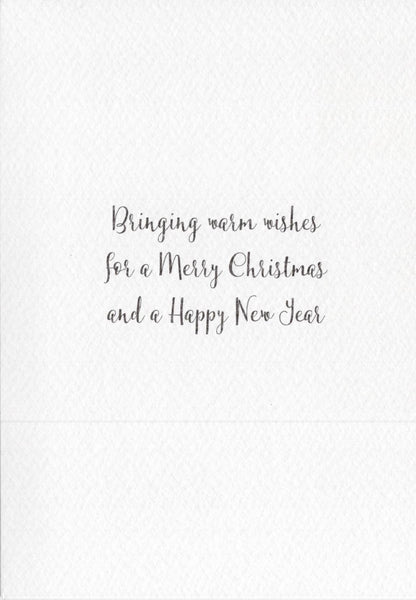 Bringing warm wishes
for a Merry Christmas
and a Happy New Year